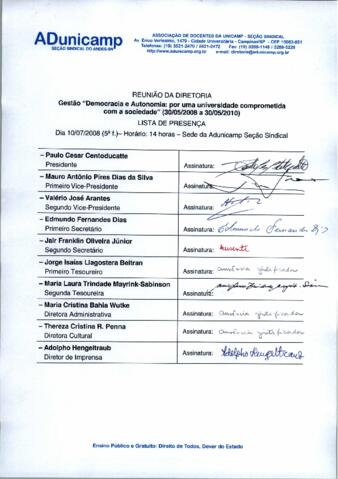 ADunicamp
SEÇÃO SINDICAL DO ANDES-SN
ASSOCIAÇÃO DE DOCENTES DA UNICAMP - SEÇÃO SINDICAL
Av. Érico Veríssimo, 1479 - Cidade Universitária - Campinas/SP - CEP 13083-851
Telefones: (19) 3521-2470 / 3521-2472 Fax: (19) 3289-1148 / 3289-5229
REUNIÃO DA DIRETORIA
Gestão "Democracia e Autonomia: por uma universidade comprometida
com a sociedade" (30/05/2008 a 30/05/2010)
LISTA DE PRESENÇA
Dia 10/07/2008 (5ª f.)– Horário: 14 horas – Sede da Adunicamp Seção Sindical
– Paulo Cesar Centoducatte
Presidente Assinatura:
– Mauro Antônio Pires Dias da Silva
Primeiro Vice-Presidente Assinatura:
– Valério José Arantes
Segundo Vice-Presidente Assinatura:
– Edmundo Fernandes Dias
Primeiro Secretário Assinatura: Edmundo Fernandes Dias
– Jair Franklin Oliveira Júnior
Segundo Secretário Assinatura: Ausente
– Jorge Isaías Llagostera Beltran
Primeiro Tesoureiro Assinatura: ausência justificada
– Maria Laura Trindade Mayrink-Sabinson
Segunda Tesoureira Assinatura:
– Maria Cristina Bahia Wutke
Diretora Administrativa Assinatura: Ausência justificada
– Thereza Cristina R. Penna
Diretora Cultural Assinatura: Ausência justificada
– Adolpho Hengeltraub
Diretor de Imprensa Assinatura: Adolpho Hengeltraub
Ensino Público e Gratuito: Direito de Todos, Dever do Estado